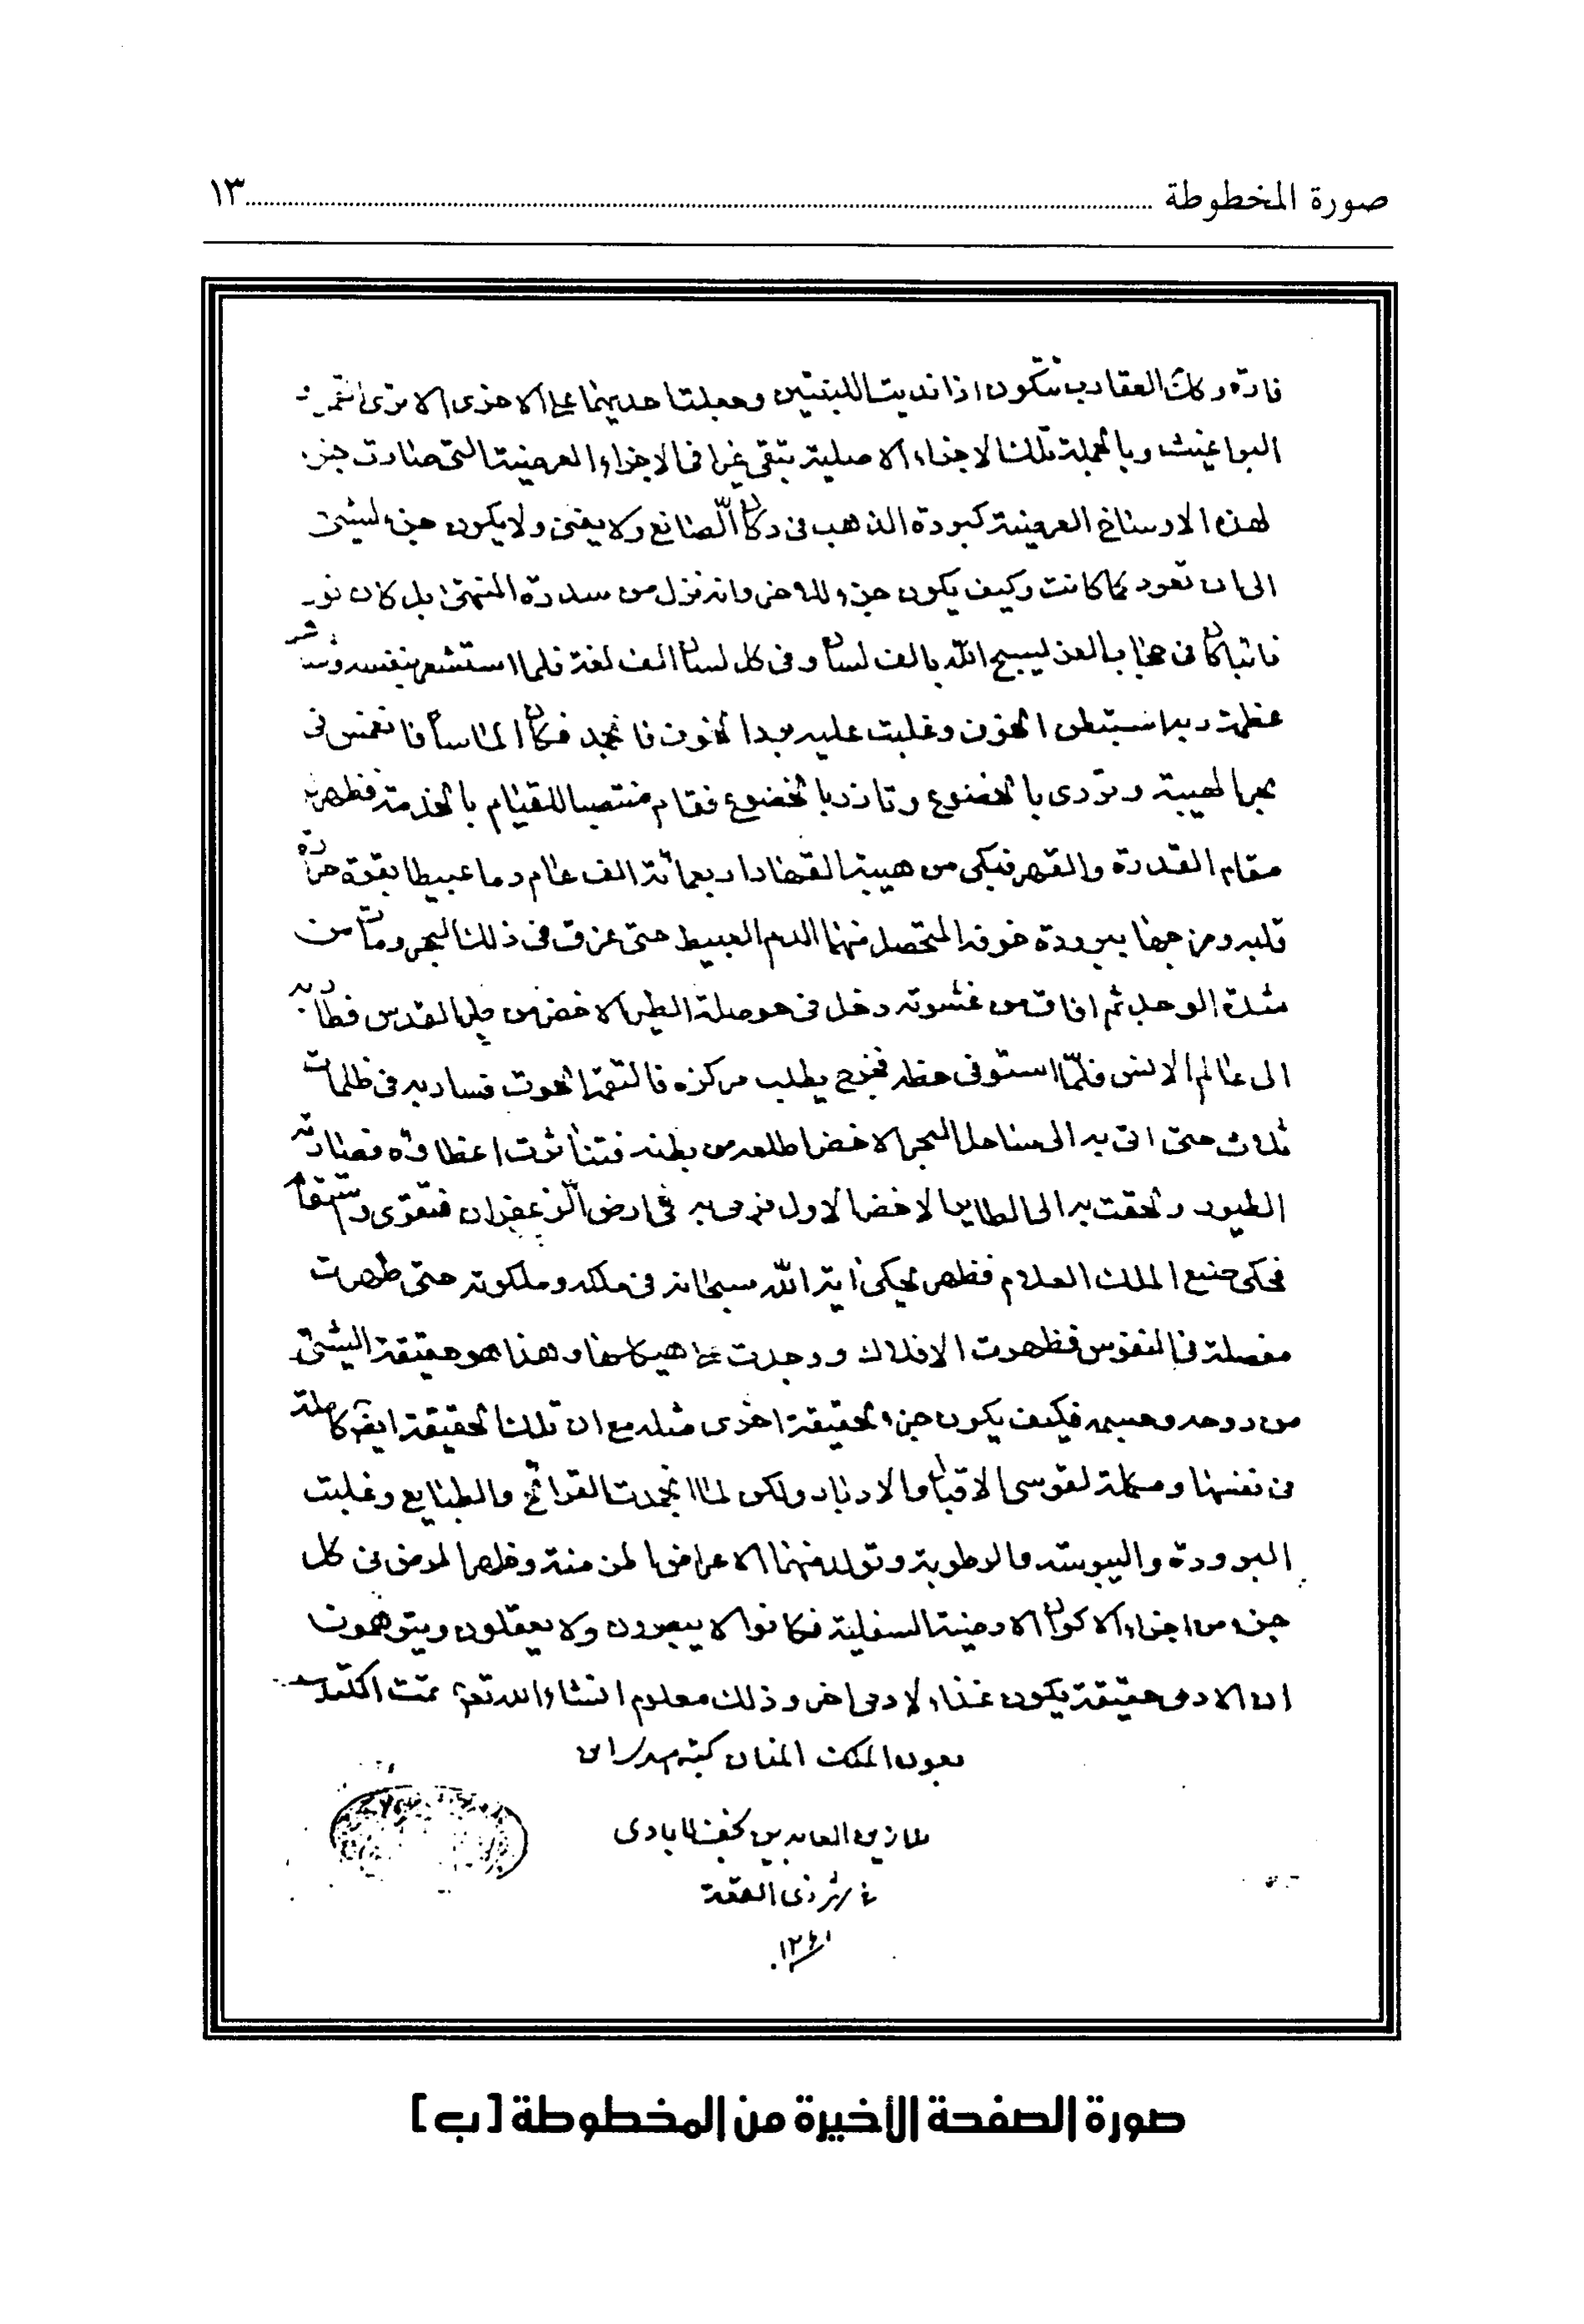 صورة المخطوطة ........ ١٣
فارة وكذلك العقارب تتكون اذا نديت اللبنتين وجعلت احديهما على الاخرى الا ترى
البراغيث وبالجملة تلك الاجزاء الاصلية تبقى في الاجزاء العرضية التى صارت جزء
لهذه الاوساخ العرضية كبرادة الذهب فى دكان الصائغ ولا يفنى ولا يكون جزء لشىء
الى ان تعود كما كانت وكيف يكون جزء للاخر وانه نزل من سدرة المنتهى بل كان
فى حجاب العز ليسبح الله بالف لسان وفى كل لسان الف لغة فلما استشعر بنفسه
عظمة ربه استبطن الخوف وغلبت عليه برد الخوف فانجمد فكان الماسا فانغمس فى
بحر الهيبة وتردى بالخضوع وتازر بالخضوع فقام منتصبا للقيام بالخدمة فظهر به
مقام القدرة والقهر فبكى من هيبة القهار اربعمائة الف عام دما عبيطا بقوة حرارة
قلبه ومزجها ببرودة خوفه المتحصل منهما الدم العبيط حتى غرق فى ذلك البحر ومات من
شدة الوجد ثم افاق من غشوته دخل فى حوصلة الطير الاخضر من طير القدس فطار به
الى عالم الانس فلما استوفى حظه فخرج يطلب مركزه فالتقمه الحوت فسار به فى ظلمات
ثلاث حتى اتى به الى ساحل البحر الاخضر اطلعه من بطنه فتناثرت اعظاؤه فصادته
الطيور ولحقت به الى الطاير الاخضر الاول فرمى به فى ارض الزعفران فتقوى
فحكى صنع الملك العلام فظهر يحكى اية الله سبحانه فى ملكه وملكوته حتى ظهرت
مفصلة فى النفوس فظهرت الافلاك ووجدت على هياكلها وهذا هو حقيقة الشىء
من روحه وجسمه فكيف يكون جزء لحقيقة اخرى مثله مع ان تلك الحقيقة ايضا كاملة
فى نفسها ومكملة لقوسى الاقبال والادبار ولكن لما انجمدت القرائح والطبايع وغلبت
البرودة واليبوسة والرطوبة وتولد منهما الاعراض المزمنة وظهر المرض فى كل
جزء من اجزاء الاكوان الارضية السفلية فكانوا لا يبصرون ولا يعقلون ويتوهمون
ان الادمى حقيقة يكون غذاء لادمى اخر وذلك معلوم انشاء الله تع تمت الكتاب
بعون الملك المنان كتبه
زين العابدين
فى شهر ذى القعدة
١٢٦١
صورة الصفحة الأخيرة من المخطوطة [ب]